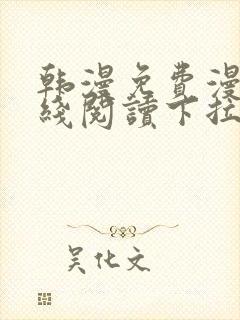 韩漫免费漫
线阅读下拉
吴化文